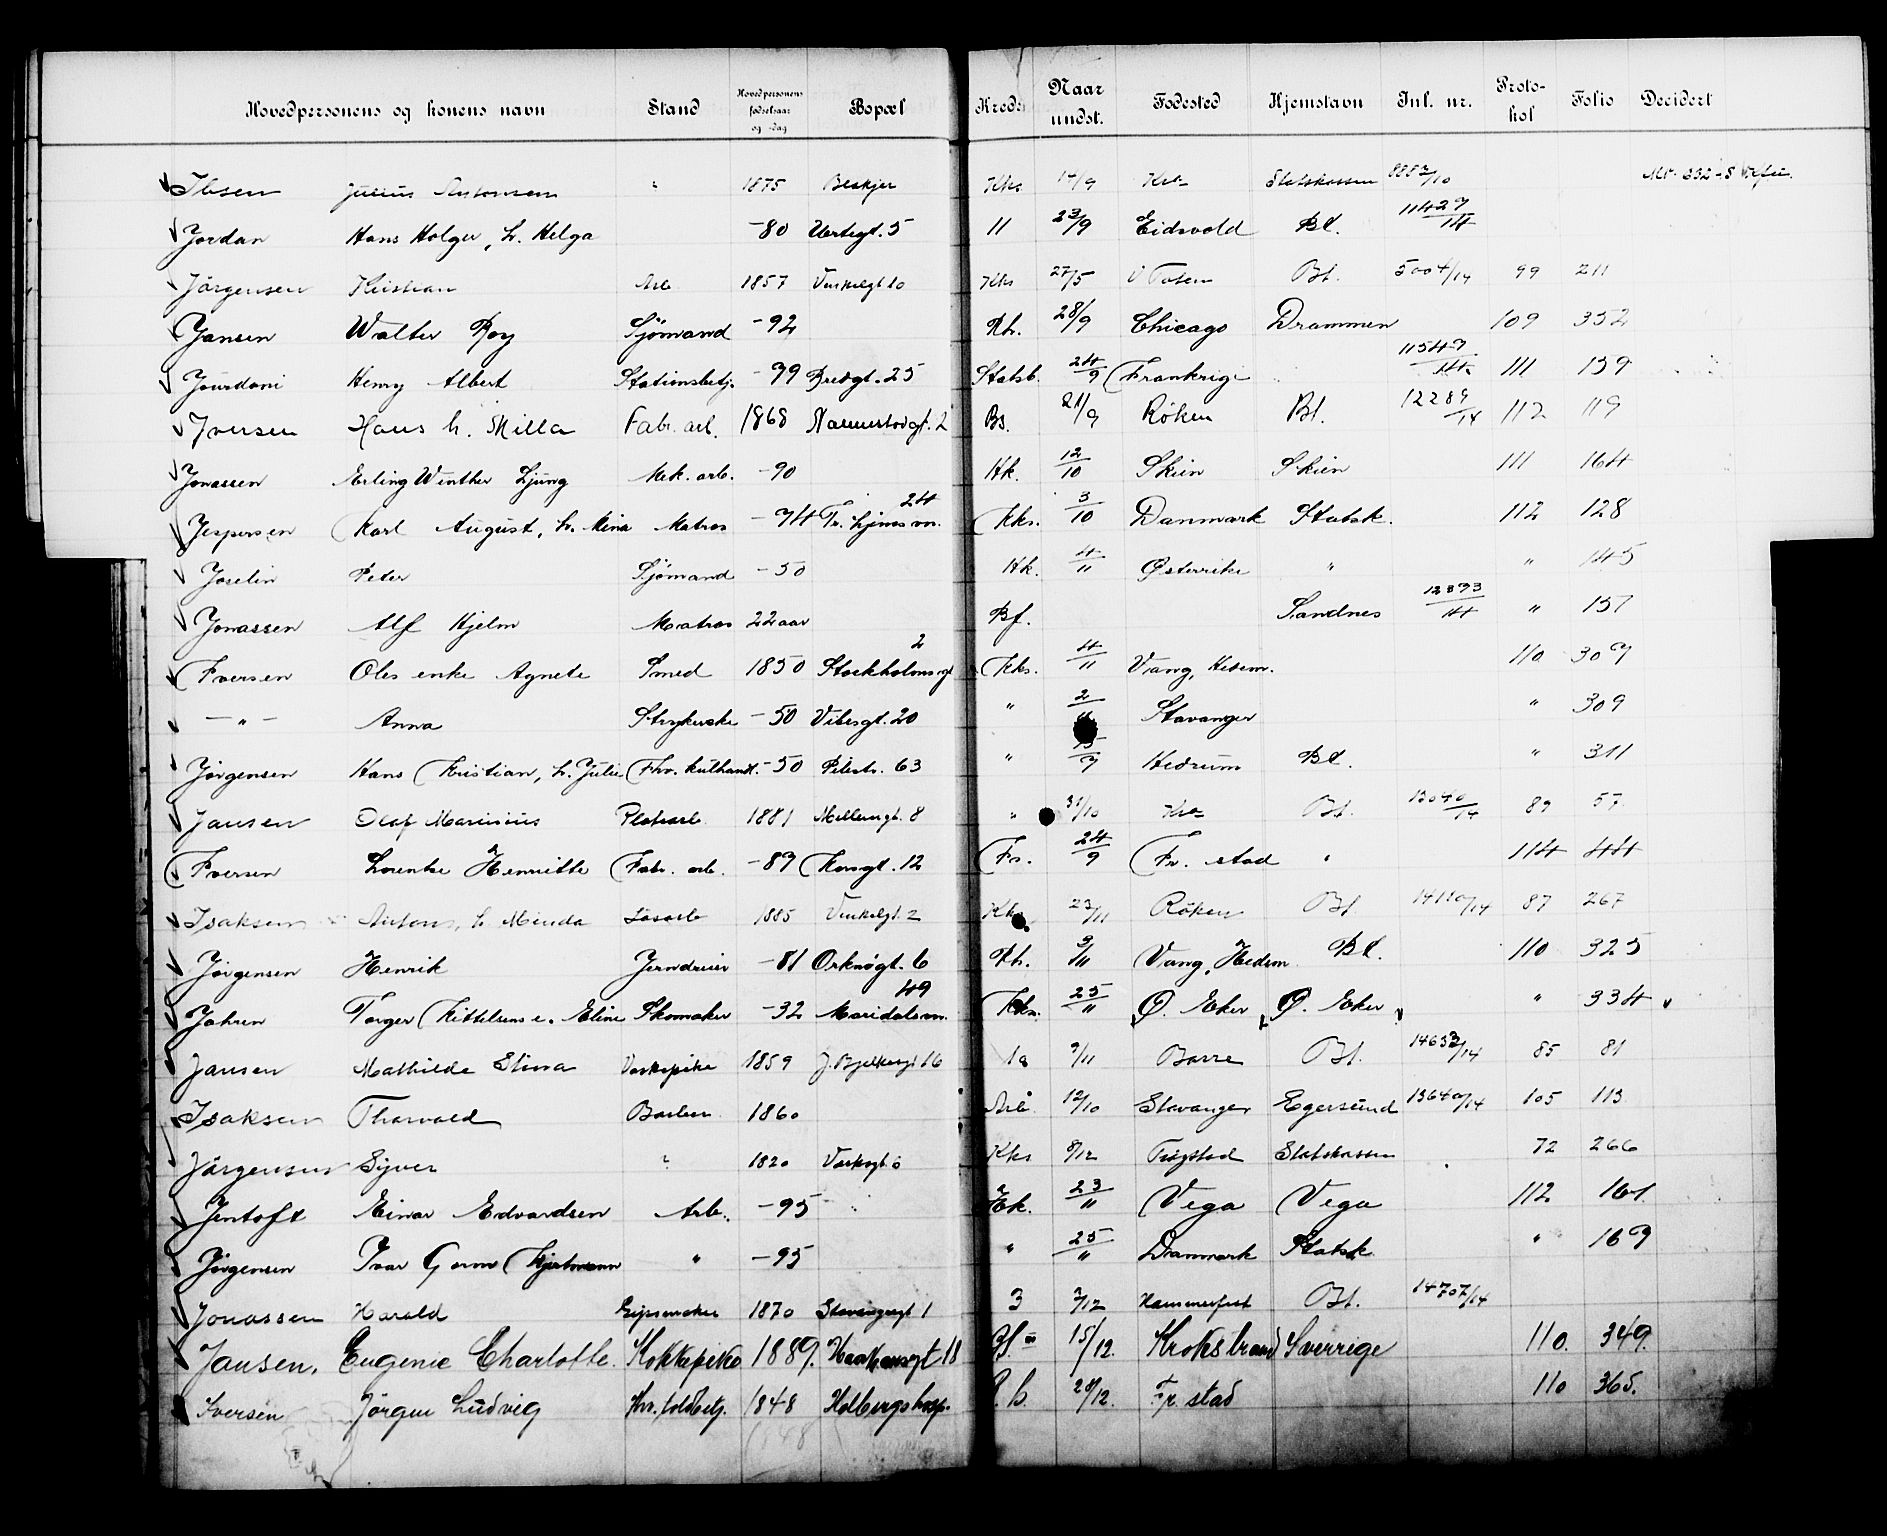 Hovedpersonens og konens navn Stand Hovedpersonens fødselsaar og -dag Bopæl Kreds Naar undst. Fødested Hjemstavn Inl. nr. Protokol Folio Decidert
Ibsen Julius Antonsen " 1875 Beskjer Kks 14/9 Kra Statskassen
Jordan Hans Holger, h. Helga -80 Vertsgt. 5 11 23/9 Eidsvold Bt. 11429/14
Jørgensen Kristian Arb. 1857 27/5 Bt. 5004/14 99 211
Jansen Walter Roy Sjømand -92 Rh. 28/9 Chicago Drammen 109 352
Jourdani Henry Albert Stationsbetj. -99 Bredgt. 25 Statsb. 24/9 Frankrig 11549/14 111 159
Iversen Hans h. Milla Fabr. arb. 1868 Bs. 21/9 Røken Bt. 12289/14 112 119
Jonassen Erling Winther Ljung Mek. arb. -90 Hk. 12/10 Skien Skien 111 164
Jespersen Karl August, h. Mina Matros -74 Tr. hjems vn. 24 Kks. 3/10 Danmark Statsk. 112 128
Joselin Peter Sjømand -50 Hk. 4/11 Østerrike " " 145
Jonassen Alf Hjelm Matros 22 aar Bf. Sandnes 12893/14 " 157
Iversen Oles enke Agnete Smed 1850 Stockholmsgt 2 Kks. 4/11 Vang, Hedem. 110 309
— " — Anna Strykerske -50 Vibesgt. 20 " 2/11 Stavanger " 309
Jørgensen Hans Kristian, h. Julie Fhv. kulhandl. -50 Pilestr. 63 " 15/9 Hedrum Bt. " 311
Jansen Olaf Marinius Platearb. 1881 Møllergt. 8 " 31/10 Kra Bt. 13040/14 89 57
Iversen Lorentze Henriette Fabr. arb. -89 Korsgt. 12 Fr. 24/9 Fr. stad " 114 44
Isaksen Anton, h. Minda Løsarb 1885 Kks 23/11 Røken Bt 14110/14 87 267
Jørgensen Henrik Jerndreier -81 Orknøgt. 6 Rh. 3/11 Vang, Hedem Bt. 110 325
Jahren Torger Kittelsens e. Eline Skomaker -32 Maridalsvn. 49 Kks. 25/11 Ø. Eker Ø. Eker " 334
Jansen Mathilde Stina Vaskepike 1859 J. Bjelkesgt 16 1a 9/11 Borre Bt. 14632/14 85 81
Isaksen Thorvald 1860 Arb. 12/10 Stavanger Egersund 13640/14 105 113
Jørgensen Syver " 1820 Kks 8/12 Trøgstad Statskassen 72 266
Jentoft Einar Edvardsen Arb. -95 Hk. 23/11 Vega Vega 112 161
Jørgensen Ivar Gorm Hjortmann " -95 " 25/11 Danmark Statsk. " 169
Jonassen Harald Gipsmaker 1870 Stavangergt 1 3 3/12 Hammerfest Bt. 14707/14
Jansen, Eugenie Charlotte. Kokkepike 1889. Haakonsgt 18 15/12. Krokstrand Sverrige 110. 349.
Iversen Jørgen Ludvig Fhv. toldbetj. 1848 Holbergs hosp. R.h. 28/12. Fr. stad 110 365.